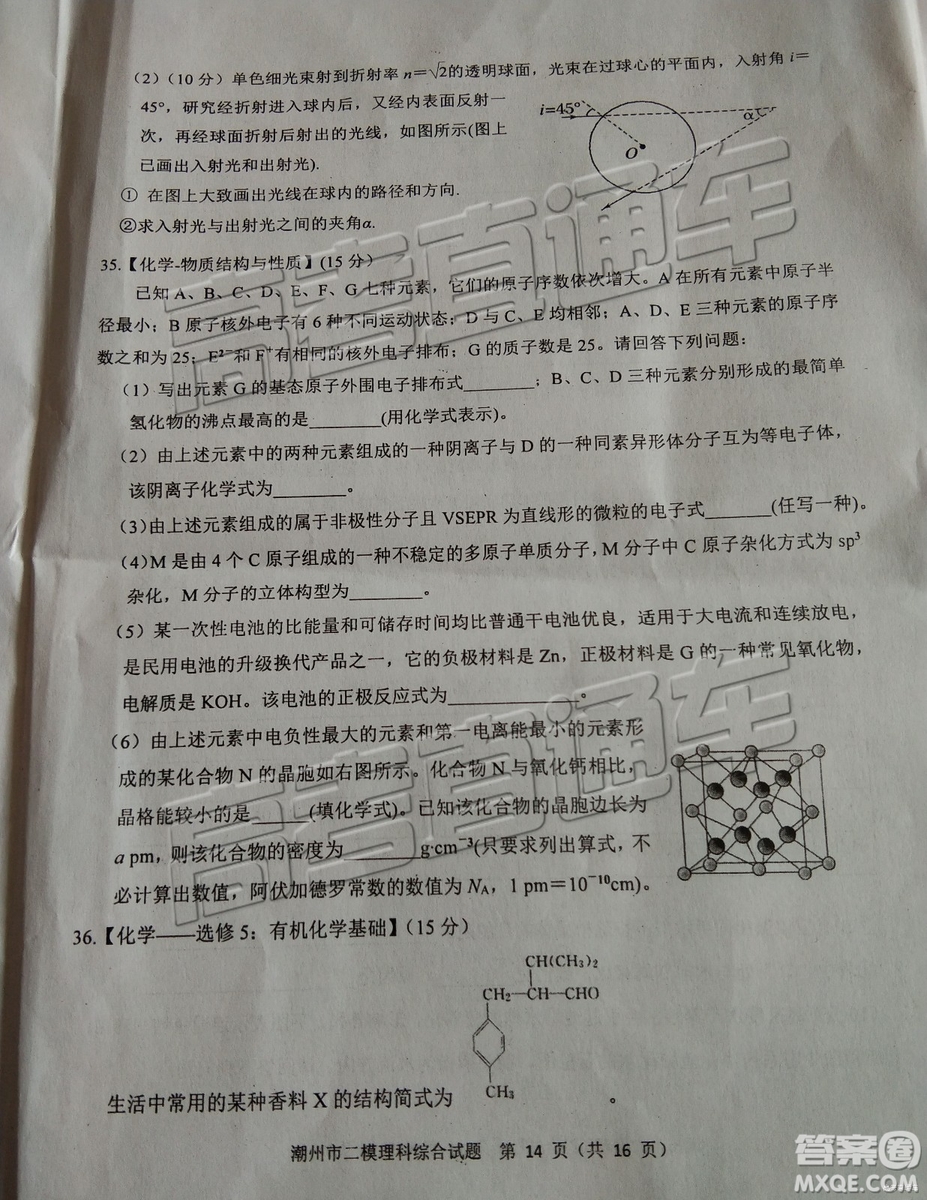 (2)(10 分) 单色细光束射到折射率 n=√2的透明球面，光束在过球心的平面内，入射角 i=
45°，研究经折射进入球内后，又经内表面反射一
次，再经球面折射后射出的光线，如图所示(图上
已画出入射光和出射光).
i=45°
α
O
① 在图上大致画出光线在球内的路径和方向.
②求入射光与出射光之间的夹角α.
35.【化学-物质结构与性质】(15 分)
已知 A、B、C、D、E、F、G 七种元素，它们的原子序数依次增大。A 在所有元素中原子半
径最小；B 原子核外电子有 6 种不同运动状态；D 与 C、E 均相邻；A、D、E 三种元素的原子序
数之和为 25；E²⁻和 F⁺有相同的核外电子排布；G 的质子数是 25。请回答下列问题：
(1) 写出元素 G 的基态原子外围电子排布式________；B、C、D 三种元素分别形成的最简单
氢化物的沸点最高的是________(用化学式表示)。
(2) 由上述元素中的两种元素组成的一种阴离子与 D 的一种同素异形体分子互为等电子体，
该阴离子化学式为________。
(3)由上述元素组成的属于非极性分子且 VSEPR 为直线形的微粒的电子式_______(任写一种)。
(4)M 是由 4 个 C 原子组成的一种不稳定的多原子单质分子，M 分子中 C 原子杂化方式为 sp³
杂化，M 分子的立体构型为________。
(5) 某一次性电池的比能量和可储存时间均比普通干电池优良，适用于大电流和连续放电，
是民用电池的升级换代产品之一，它的负极材料是 Zn，正极材料是 G 的一种常见氧化物，
电解质是 KOH。该电池的正极反应式为____________。
(6) 由上述元素中电负性最大的元素和第一电离能最小的元素形
成的某化合物 N 的晶胞如右图所示。化合物 N 与氧化钙相比，
晶格能较小的是 _____(填化学式)。已知该化合物的晶胞边长为
a pm，则该化合物的密度为_______g·cm⁻³(只要求列出算式，不
必计算出数值，阿伏加德罗常数的数值为 N_A，1 pm=10⁻¹⁰cm)。
36.【化学——选修 5：有机化学基础】(15 分)
CH(CH₃)₂
CH₂—CH—CHO
CH₃
生活中常用的某种香料 X 的结构简式为 。
潮州市二模理科综合试题 第 14 页（共 16 页）
高考直通车
高考直通车
答案圈
MXQE.COM